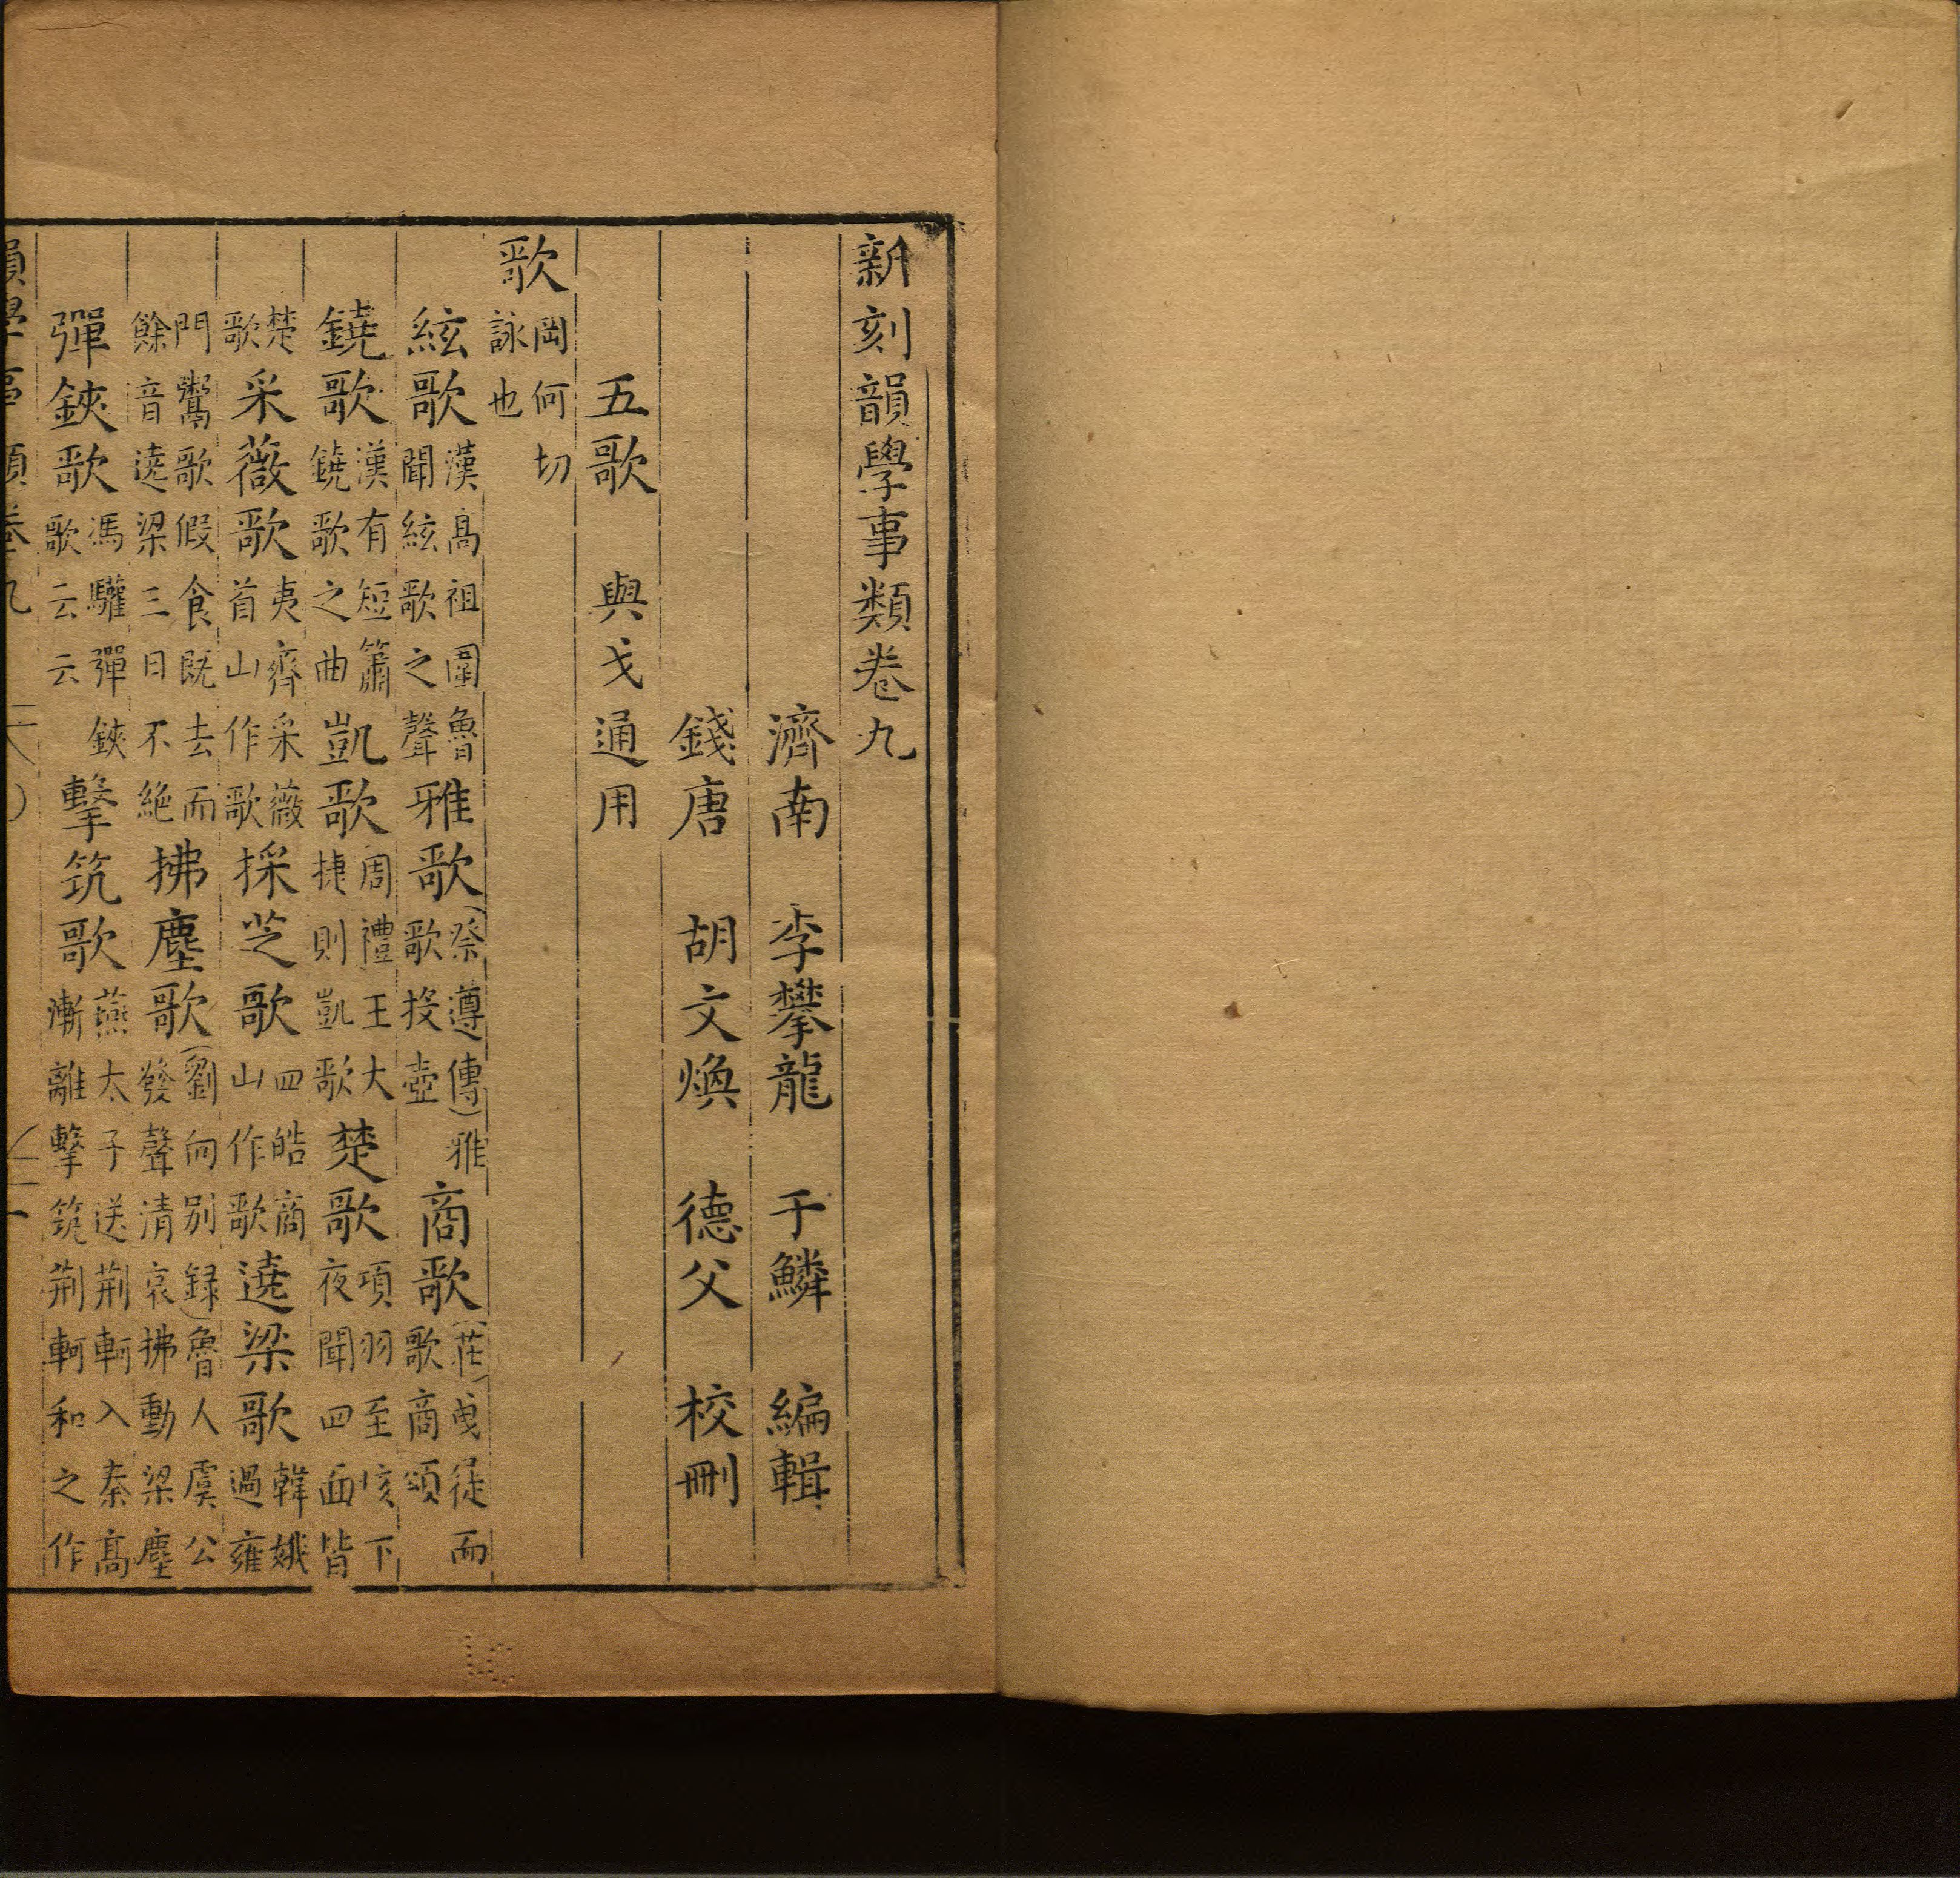 新刻韻學事類卷九
濟南 李攀龍 于鱗 編輯
錢唐 胡文煥 德父 校刪
五歌 與戈通用
歌 岡何切詠也
絃歌 漢高祖圍魯聞絃歌之聲 雅歌 (祭遵傳)雅歌投壺 商歌 (莊)曳徒而歌商頌
鐃歌 漢有短簫鐃歌之曲 凱歌 周禮王大捷則凱歌 楚歌 項羽至垓下夜聞四面皆
楚歌 采薇歌 夷齊采薇首山作歌 採芝歌 四皓商山作歌 遶梁歌 韓娥過雍
門鬻歌假食既去而餘音遶梁三日不絶 拂塵歌 (劉向别録)魯人虞公發聲清哀拂動梁塵
彈鋏歌 馮驩彈鋏歌云云 擊筑歌 燕太子送荆軻入秦高漸離擊筑荆軻和之作
韻學事類卷九